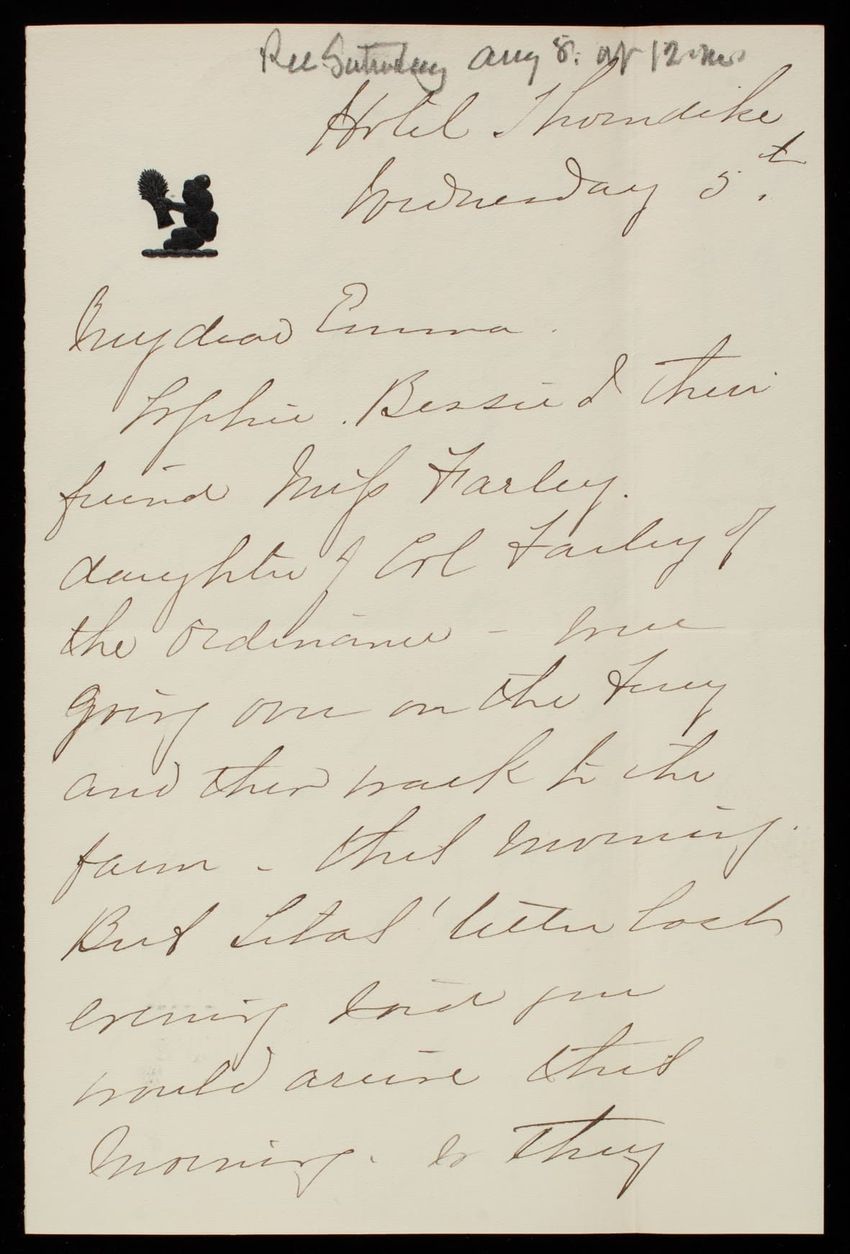 Rec Saturday Aug 8. at 12
Hotel Thorndike
Wednesday 5th
My dear Emma.
Sophie. Bessie & their
friend Miss Farley.
daughter of Col Farley of
the Ordinance - were
going over on the Ferry
and then walk to the
farm - this morning.
But Litas' letter last
evening said you
would arrive this
morning. So they